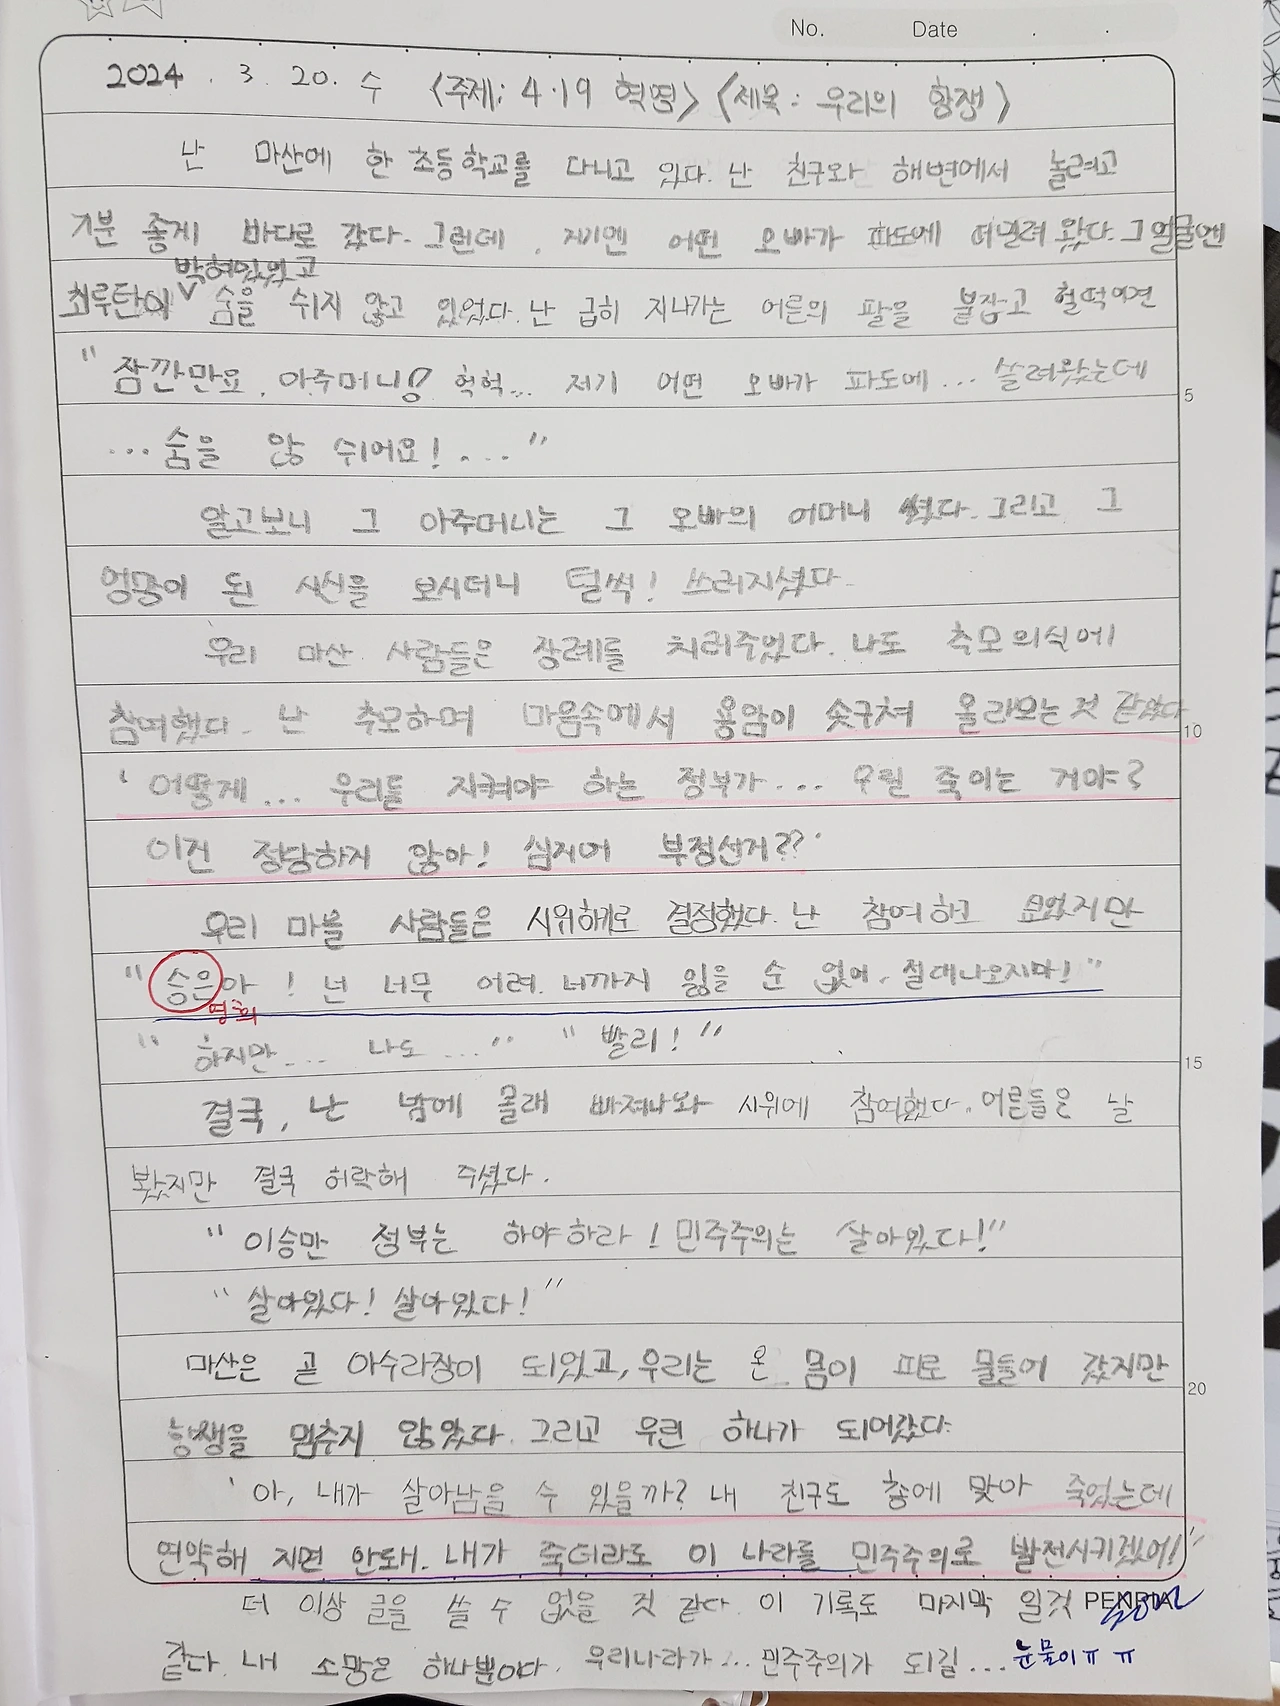 No. Date
2024. 3. 20. 수 <주제: 4.19 혁명> <제목: 우리의 항쟁>
난 마산에 한 초등학교를 다니고 있다. 난 친구와 해변에서 놀려고
기분 좋게 바다로 갔다. 그런데, 저기엔 어떤 오빠가 파도에 떠밀려 왔다. 그 얼굴엔
박혀있었고
최루탄이 ∨ 숨을 쉬지 않고 있었다. 난 급히 지나가는 어른의 팔을 붙잡고 헐떡이면
"잠깐만요, 아주머니! 헉헉... 저기 어떤 오빠가 파도에... 쓸려왔는데
...숨을 않 쉬어요!..."
알고보니 그 아주머니는 그 오빠의 어머니 셨다. 그리고 그
엉망이 된 시신을 보시더니 털썩! 쓰러지셨다.
우리 마산 사람들은 장례를 치러주었다. 나도 추모 의식에
참여했다. 난 추모하며 마음속에서 용암이 솟구쳐 올라오는 것 같았다
'어떻게... 우리를 지켜야 하는 정부가... 우릴 죽이는 거야?
이건 정당하지 않아! 심지어 부정선거??'
우리 마을 사람들은 시위하기로 결정했다. 난 참여하고 싶었지만
"승은아! 넌 너무 어려. 너까지 잃을 순 없어. 절대나오지마!"
영희
"하지만... 나도..." "빨리!"
결국, 난 밤에 몰래 빠져나와 시위에 참여했다. 어른들은 날
봤지만 결국 허락해 주셨다.
"이승만 정부는 하야하라! 민주주의는 살아있다!"
"살아있다! 살아있다!"
마산은 곧 아수라장이 되었고, 우리는 온 몸이 피로 물들어 갔지만
항쟁을 멈추지 않았다. 그리고 우린 하나가 되어갔다.
'아, 내가 살아남을 수 있을까? 내 친구도 총에 맞아 죽었는데
연약해 지면 안돼. 내가 죽더라도 이 나라를 민주주의로 발전시키겠어!'
더 이상 글을 쓸 수 없을 것 같다. 이 기록도 마지막 일것 PENPIA
같다. 내 소망은 하나뿐이다. 우리나라가... 민주주의가 되길... 눈물이ㅠㅠ
5
10
15
20